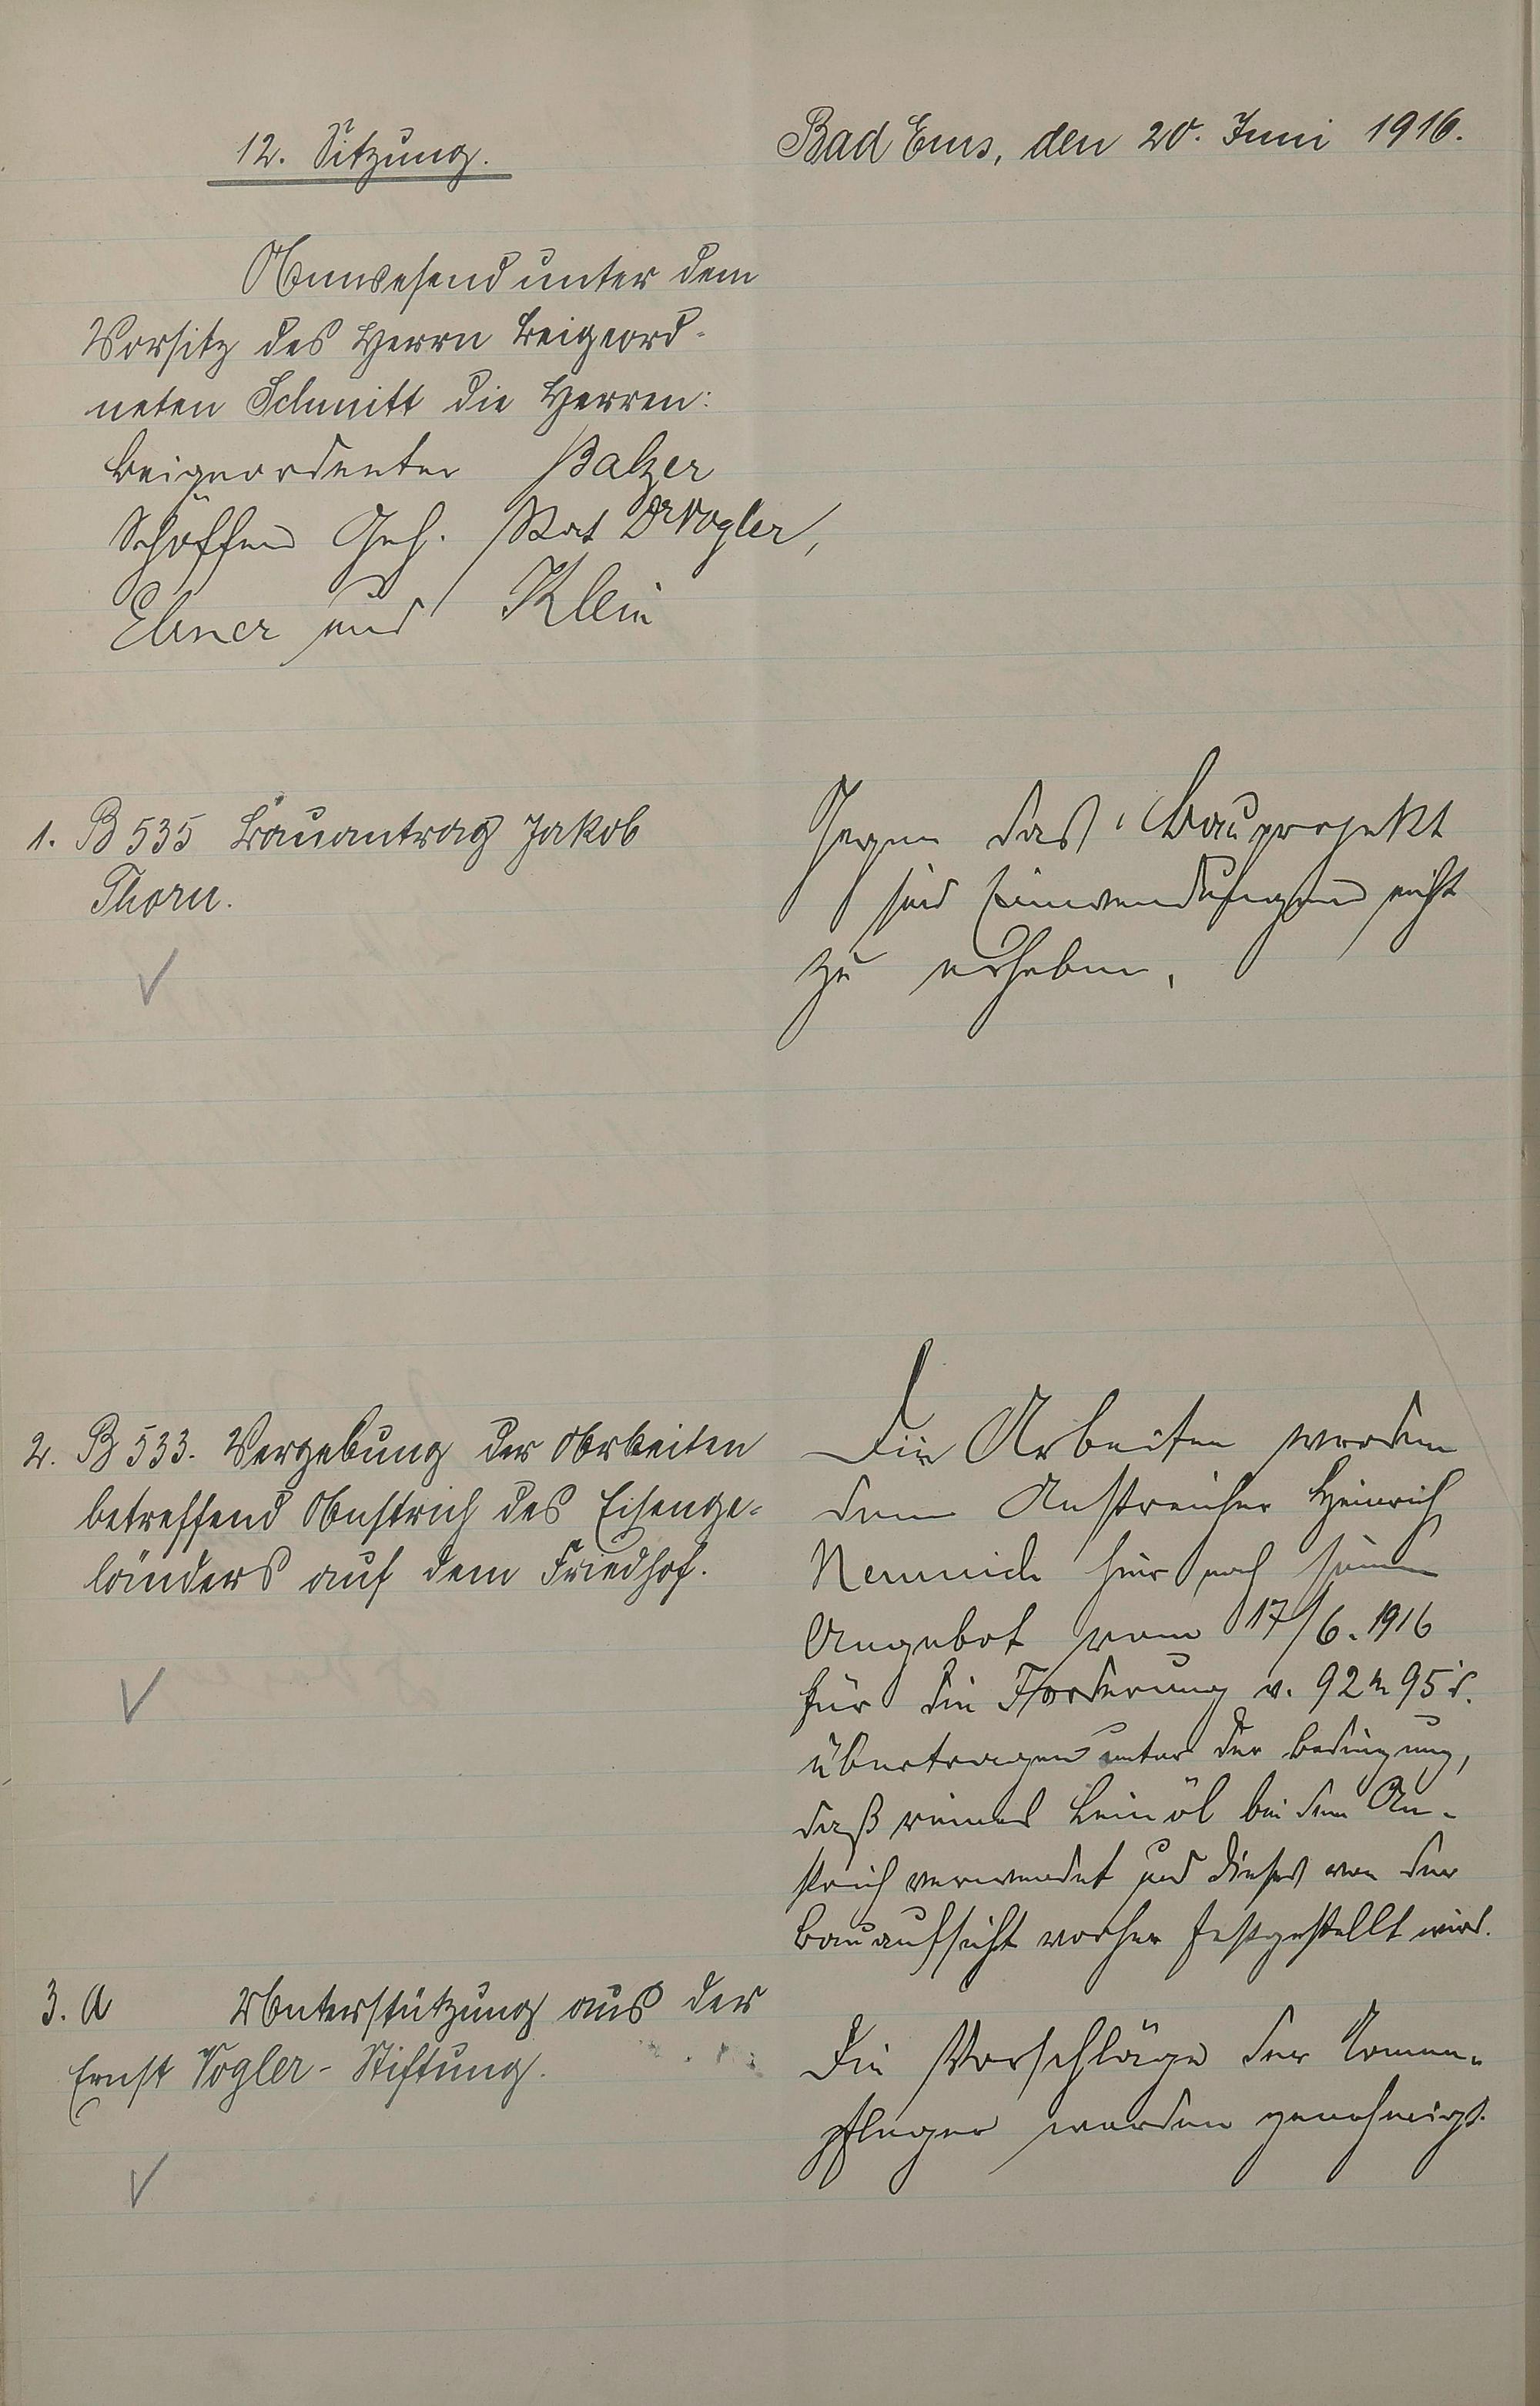 12. Sitzung.
Bad Ems, den 20. Juni 1916.
Anwesend unter dem
Vorsitz des Herrn Beigeord-
neten Schmitt die Herren:
Beigeordneter Balzer
Schöffen Geh. Rat Dr Vogler,
Ebner und Klein
1. B 535 Bauantrag Jakob
Thorn.
Gegen das Bauprojekt
sind Einwendungen nicht
zu erheben.
2. B 533. Vergebung der Arbeiten
betreffend Anstrich des Eisenge-
länders auf dem Friedhof.
Die Arbeiten werden
dem Anstreicher Heinrich
Nemnich hier nach seinem
Angebot vom 17/6. 1916
für die Forderung v. 92 M 95 d.
übertragen unter der Bedingung,
daß reines Leinöl bei dem An-
strich verwendet und dieses von der
Bauaufsicht vorher festgestellt wird.
3. A Unterstützung aus der
Ernst Vogler-Stiftung.
Die Vorschläge der Armen-
pfleger werden genehmigt.